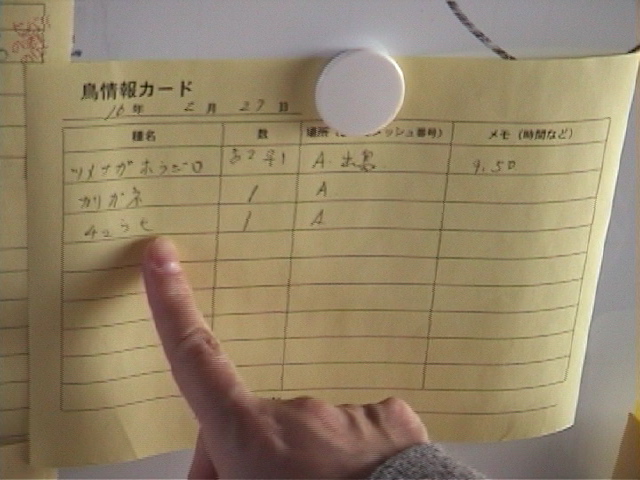 鳥情報カード
16年 2月 27日
種名 数 場所( メッシュ番号) メモ(時間など)
ツメナガホオジロ ♂2 ♀1 A 9.50
カリガネ 1 A
チュウヒ 1 A